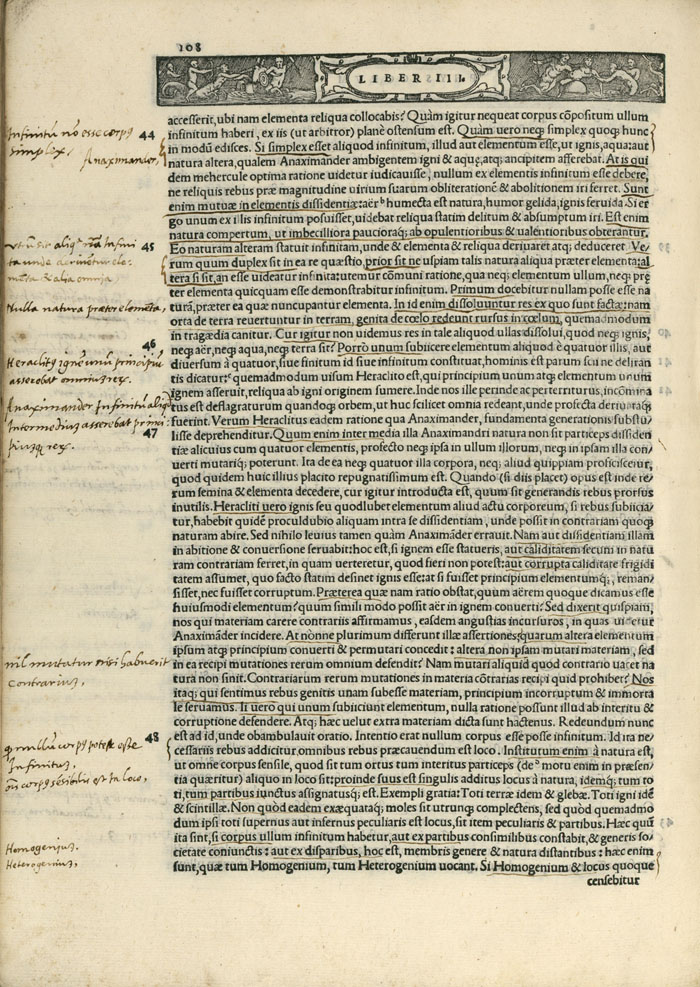 108
LIBER III.
accesserit, ubi nam elementa reliqua collocabis? Quàm igitur nequeat corpus cōpositum ullum
infinitum haberi, ex iis (ut arbitror) planè ostensum est. Quàm uero neq; simplex quoq; hunc
in modū edisces. Si simplex esset aliquod infinitum, illud aut elementum esse, ut ignis, aqua: aut
natura altera, qualem Anaximāder ambigentem igni & aquę, atq; ancipitem asserebat. At is qui
dem mehercule optima ratione uidetur iudicauisse, nullum ex elementis infinitum esse debere,
ne reliquis rebus præ magnitudine uirium suarum obliterationē & abolitionem iri ferret. Sunt
enim mutuæ in elementis dissidentiæ: aër humecta est natura, humor gelida, ignis feruida. Si er
go unum ex illis infinitum posuisset, uidebat reliqua statim delitum & absumptum iri. Est enim
natura compertum, ut imbecilliora paucioraq; ab opulentioribus & ualentioribus obterantur.
Eo naturam alteram statuit infinitam, unde & elementa & reliqua deriuaret atq; deduceret. Ve-
rum quum duplex sit in ea re quæstio, prior sit ne uspiam talis natura aliqua præter elementa: al
tera si sit, an esse uideatur infinita: utemur cōmuni ratione, qua neq; elementum ullum, neq; prę
ter elementa quicquam esse demonstrabitur infinitum. Primum docebitur nullam posse esse na
turā, præter ea quæ nuncupantur elementa. In id enim dissoluuntur res ex quo sunt factæ: nam
orta de terra reuertuntur in terram, genita de cœlo redeunt rursus in cœlum, quemadmodum
in tragœdia canitur. Cur igitur non uidemus res in tale aliquod ullas dissolui, quod neq; ignis,
neq; aër, neq; aqua, neq; terra sit? Porrò unum subiicere elementum aliquod è quatuor illis, aut
diuersum à quatuor, siue finitum id siue infinitum constituat, hominis est parum sci ne deliran
tis dicatur: quemadmodum uisum Heraclito est, qui principium unum atq; elementum unum
ignem asseruit, reliqua ab igni originem sumere. Inde nos ille perinde ac perterriturus, incinina
tus est deflagraturum quandoq; orbem, ut huc scilicet omnia redeant, unde profecta deriuataq;
fuerint. Verum Heraclitus eadem ratione qua Anaximander, fundamenta generationis substu-
lisse deprehenditur. Quum enim inter media illa Anaximandri natura non sit particeps dissiden
tiæ alicuius cum quatuor elementis, profecto neq; ipsa in ullum illorum, neq; in ipsam illa con-
uerti mutariq; poterunt. Ita de ea neq; quatuor illa corpora, neq; aliud quippiam proficiscetur,
quod quidem huic illius placito repugnatissimum est. Quando (si diis placet) opus est inde re-
rum semina & elementa decedere, cur igitur introducta est, quum sit generandis rebus prorsus
inutilis. Heracliti uero ignis seu quodlubet elementum aliud actu corporeum, si rebus subiicia-
tur, habebit quidē proculdubio aliquam intra se dissidentiam, unde possit in contrariam quoq;
naturam abire. Sed nihilo leuius tamen quàm Anaximāder errauit. Nam aut dissidentiani illam
in abitione & conuersione seruabit: hoc est, si ignem esse statueris, aut caliditatem secum in natu
ram contrariam ferret, in quam uerteretur, quod fieri non potest: aut corrupta caliditate frigidi
tatem assumet, quo facto statim desinet ignis esse: at si fuisset principium elementumq;, reman-
sisset, nec fuisset corruptum. Præterea quæ nam ratio obstat, quum aërem quoque dicamus esse
huiusmodi elementum? quum simili modo possit aër in ignem conuerti? Sed dixerit quispiam,
nos qui materiam carere contrariis affirmamus, easdem angustias incursuros, in quas uidetur
Anaximāder incidere. At nōnne plurimum differunt illæ assertiones: quarum altera elementum
ipsum atq; principium conuerti & permutari concedit: altera non ipsam mutari materiam, sed
in ea recipi mutationes rerum omnium defendit? Nam mutari aliquid quod contrario uacet na
tura non sinit. Contrariarum rerum mutationes in materia cōtrarias recipi quid prohibet? Nos
itaq; qui sentimus rebus genitis unam subesse materiam, principium incorruptum & immorta
le seruamus. Ii uero qui unum subiiciunt elementum, nulla ratione possunt illud ab interitu &
corruptione defendere. Atq; hæc uelut extra materiam dicta sunt hactenus. Redeundum nunc
est ad id, unde obambulauit oratio. Intentio erat nullum corpus esse posse infinitum. Id ita ne-
cessariis rebus addicitur, omnibus rebus præcauendum est loco. Institutum enim à natura est,
ut omne corpus sensile, quod sit tum ortus tum interitus particeps (de motu enim in præsen-
tia quæritur) aliquo in loco sit: proinde suus est singulis additus locus à natura, idemq; tum to
ti, tum partibus iunctus assignatusq; est. Exempli gratia: Toti terræ idem & glebæ. Toti igni idē
& scintillæ. Non quòd eadem exæquataq; moles sit utrunq; complectens, sed quòd quemadmo
dum ipsi toti supernus aut infernus peculiaris est locus, sit item peculiaris & partibus. Hæc quū
ita sint, si corpus ullum infinitum habetur, aut ex partibus consimilibus constabit, & generis so-
cietate coniunctis: aut ex disparibus, hoc est, membris genere & natura distantibus: hæc enim
sunt, quæ tum Homogenium, tum Heterogenium uocant. Si Homogenium & locus quoque
censebitur
Infinitū nō esse corpꝰ
simplex.
Anaximander.
44
45
Nulla natura præter elementa.
46
Heraclitꝰ ignē unū principiū
asserebat omniū rex.
Anaximander Infinitū aliqd
Intermediū asserebat princi-
piūq; rex.
47
nil mutatur nisi habuerit
contrarium.
48
q nullū corpꝰ potest esse
Infinitū.
oē corpꝰ sēsibile est ī loco.
Homogenium.
Heterogenium.